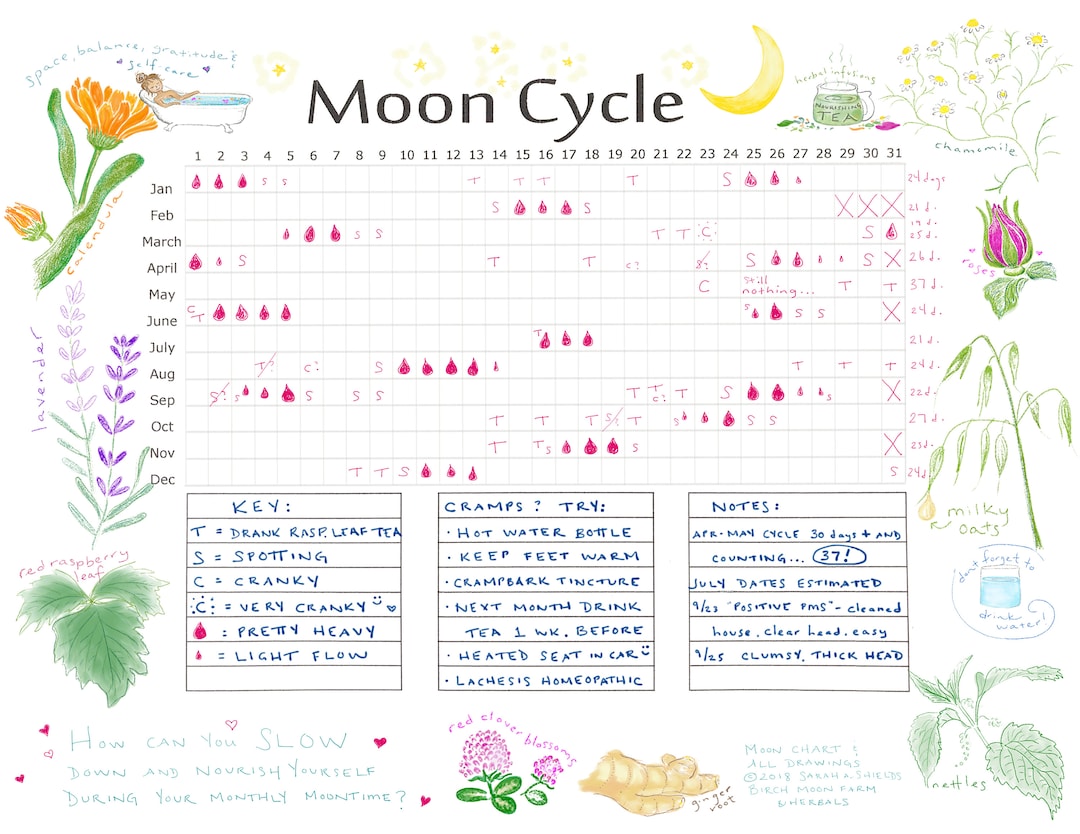 space, balance, gratitude &
self-care
Moon Cycle
herbal infusions
NOURISHING
TEA
chamomile
calendula
1 2 3 4 5 6 7 8 9 10 11 12 13 14 15 16 17 18 19 20 21 22 23 24 25 26 27 28 29 30 31
Jan S S T T T T T S 24 days
Feb S S X X X 21 d.
19 d.
March S S T T C S 25 d.
April S T T C? S? S S X 26 d.
roses
May C Still nothing... T T 37 d.
June C T S S S X 24 d.
July T 21 d.
Aug T? C? S S T T T 24 d.
Sep S? S S S S T T C? T S S X 22 d.
Oct T T T S? T S S S 27 d.
Nov T T S S X 23 d.
Dec T T S S 24 d.
lavender
milky
oats
red raspberry
leaf
KEY:
T = DRANK RASP. LEAF TEA
S = SPOTTING
C = CRANKY
C = VERY CRANKY
: PRETTY HEAVY
= LIGHT FLOW
CRAMPS? TRY:
· HOT WATER BOTTLE
· KEEP FEET WARM
· CRAMPBARK TINCTURE
· NEXT MONTH DRINK
TEA 1 WK. BEFORE
· HEATED SEAT IN CAR
· LACHESIS HOMEOPATHIC
NOTES:
APR-MAY CYCLE 30 days + AND
COUNTING... 37!
JULY DATES ESTIMATED
9/23 "POSITIVE PMS" - cleaned
house. clear head. easy
9/25 CLUMSY, THICK HEAD
don't forget to
drink
water!
HOW CAN YOU SLOW
DOWN AND NOURISH YOURSELF
DURING YOUR MONTHLY MOONTIME?
red clover blossoms
ginger
root
MOON CHART &
ALL DRAWINGS
©2018 SARAH A. SHIELDS
BIRCH MOON FARM
& HERBALS
nettles